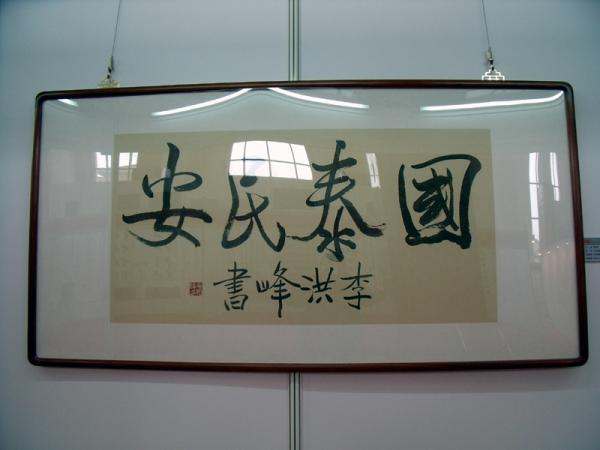 國泰民安
李洪峰書